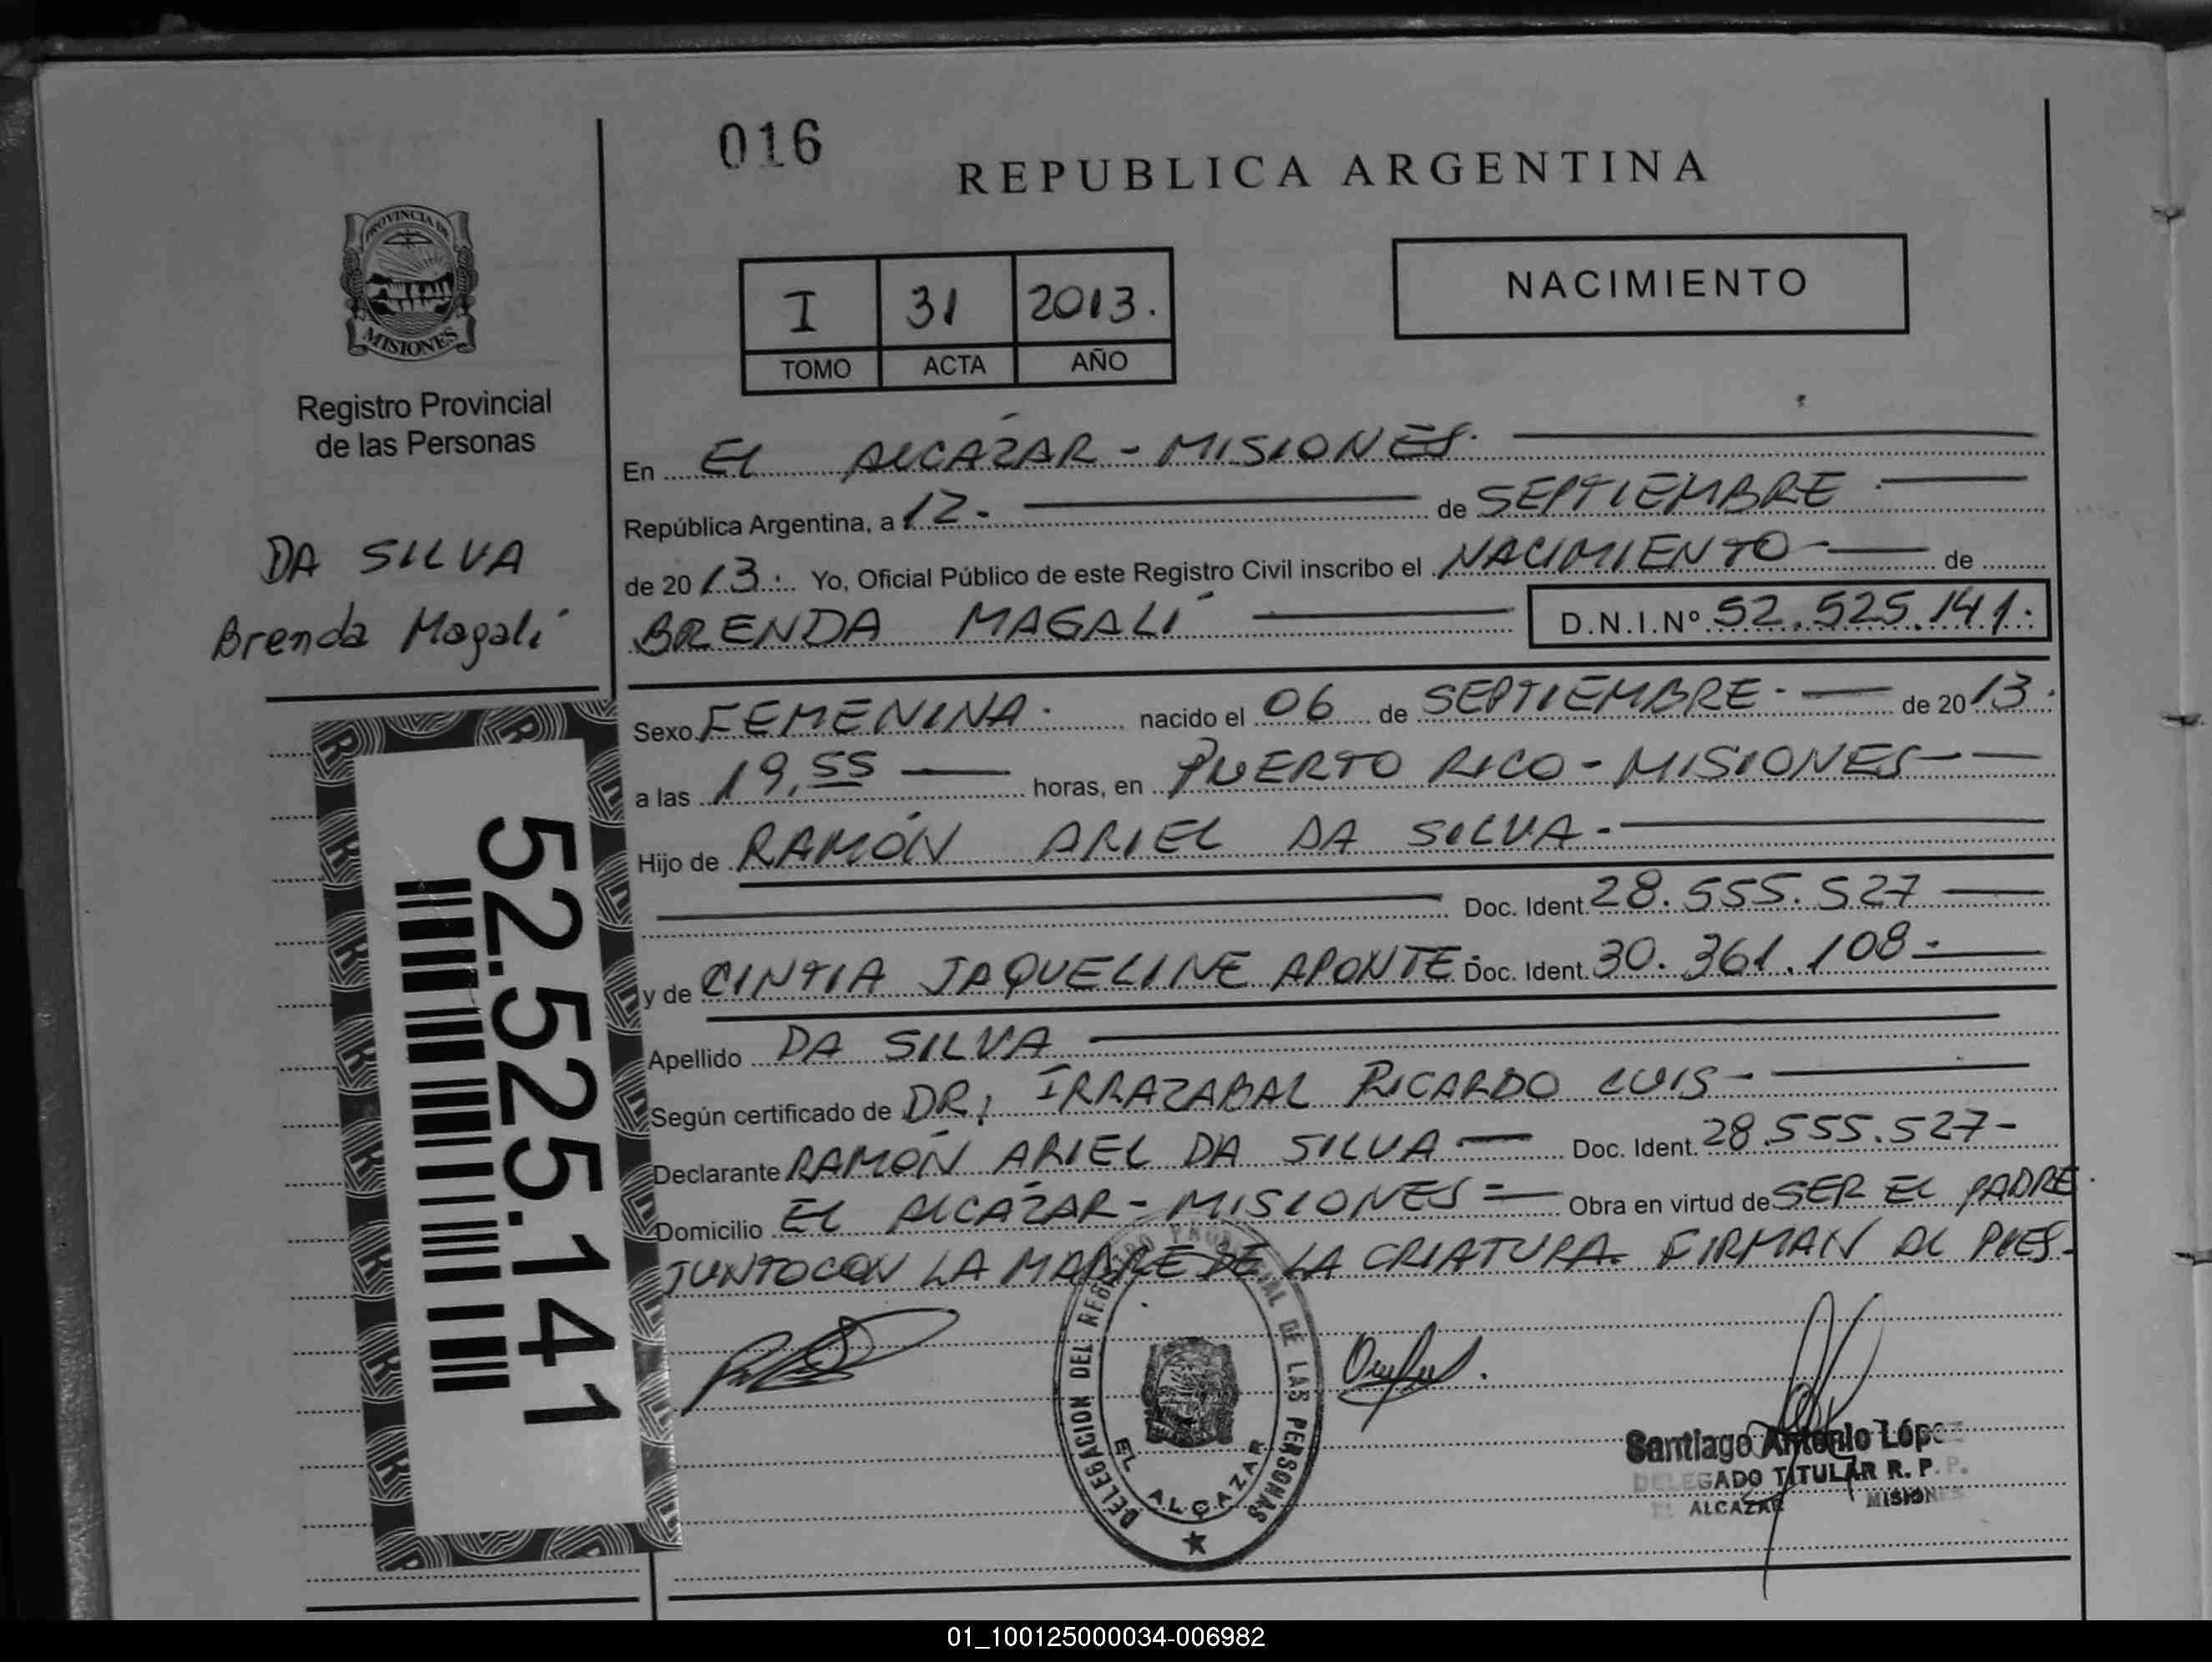 016
REPUBLICA ARGENTINA
PROVINCIA DE
MISIONES
Registro Provincial
de las Personas
DA SILVA
Brenda Magalí
I 31 2013.
TOMO ACTA AÑO
NACIMIENTO
En El ALCÁZAR - MISIONES.
República Argentina, a 12. de SEPTIEMBRE
de 2013. Yo, Oficial Público de este Registro Civil inscribo el NACIMIENTO - de
BRENDA MAGALÍ D.N.I.Nº 52.525.141.
Sexo FEMENINA. nacido el 06 de SEPTIEMBRE. de 2013.
a las 19,55 horas, en PUERTO RICO - MISIONES -
Hijo de RAMÓN ARIEL DA SILVA -
Doc. Ident. 28.555.527
y de CINTIA JAQUELINE APONTE - Doc. Ident. 30.361.108 -
Apellido DA SILVA
Según certificado de DR, IRRAZABAL RICARDO LUIS -
Declarante RAMÓN ARIEL DA SILVA Doc. Ident. 28.555.527 -
Domicilio El ALCÁZAR - MISIONES = Obra en virtud de SER EL PADRE
JUNTO CON LA MADRE DE LA CRIATURA. FIRMAN AL PRES-
52.525.141
DELEGACION DEL REGISTRO PROVINCIAL DE LAS PERSONAS
EL ALCAZAR
Santiago Antonio López
DELEGADO TITULAR R. P. P.
EL ALCAZAR MISIONES
01_100125000034-006982